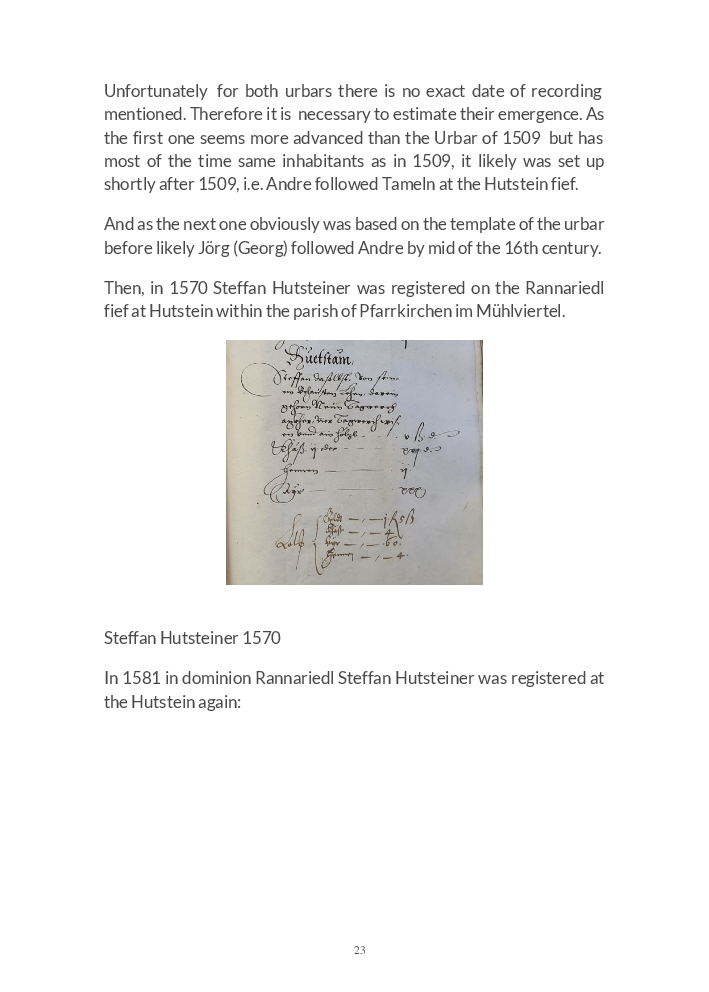 Unfortunately for both urbars there is no exact date of recording
mentioned. Therefore it is necessary to estimate their emergence. As
the first one seems more advanced than the Urbar of 1509 but has
most of the time same inhabitants as in 1509, it likely was set up
shortly after 1509, i.e. Andre followed Tameln at the Hutstein fief.
And as the next one obviously was based on the template of the urbar
before likely Jörg (Georg) followed Andre by mid of the 16th century.
Then, in 1570 Steffan Hutsteiner was registered on the Rannariedl
fief at Hutstein within the parish of Pfarrkirchen im Mühlviertel.
Steffan daselbst. Von seinem
ij
Steffan Hutsteiner 1570
In 1581 in dominion Rannariedl Steffan Hutsteiner was registered at
the Hutstein again:
23